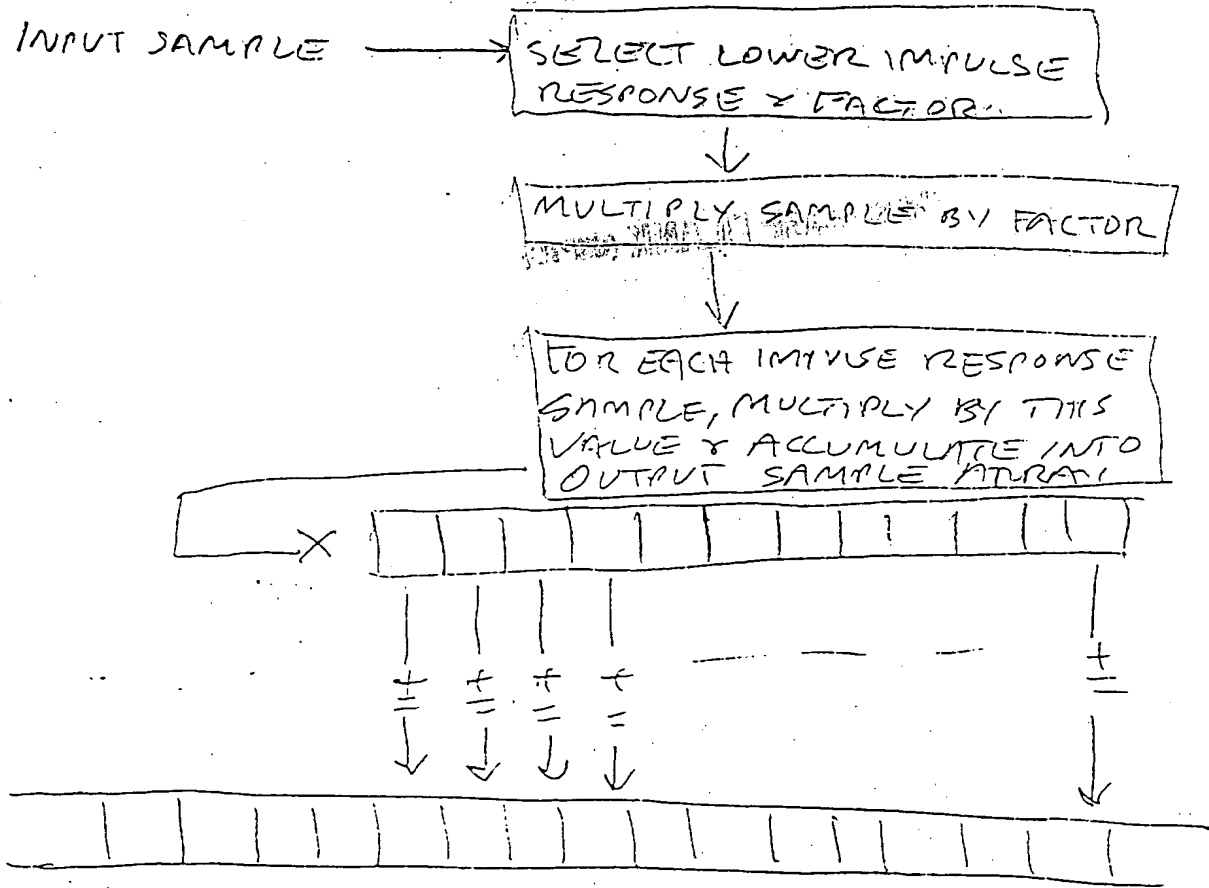 INPUT SAMPLE
SELECT LOWER IMPULSE
RESPONSE & FACTOR.
MULTIPLY SAMPLE BY FACTOR
FOR EACH IMPULSE RESPONSE
SAMPLE, MULTIPLY BY THIS
VALUE & ACCUMULATE INTO
OUTPUT SAMPLE ARRAY
X
+ + + + +
= = = = =